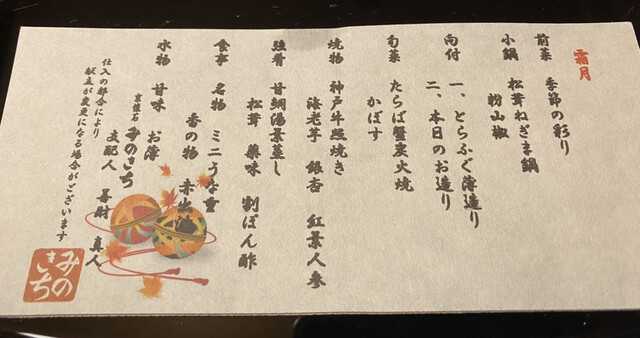 霜月
前菜 季節の彩り
小鍋 松茸ねぎま鍋
粉山椒
向付 一、とらふぐ薄造り
二、本日のお造り
旬菜 たらば蟹炭火焼
かぼす
焼物 神戸牛照焼き
海老芋 銀杏 紅葉人参
強肴 甘鯛湯葉蒸し
松茸 薬味 割ぽん酢
食事 名物 ミニうな重
香の物 赤出汁
水物 甘味 お薄
京懐石 みのきち
支配人 喜財 真人
仕入の都合により
献立が変更になる場合がございます
みの
きち